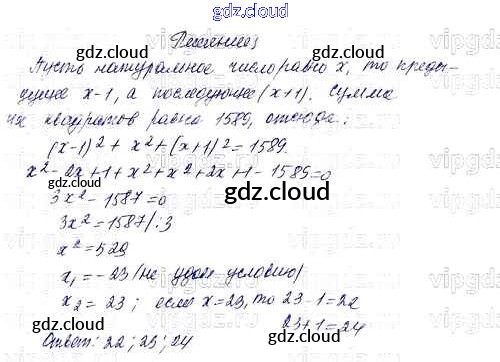 gdz.cloud
Решение
Пусть натуральное число равно x, то преды-
дущее x-1, а последующее (x+1). Сумма
их квадратов равна 1589, отсюда:
(x-1)² + x² + (x+1)² = 1589
x² - 2x + 1 + x² + x² + 2x + 1 - 1589 = 0
3x² - 1587 = 0
3x² = 1587 / :3
x² = 529
x₁ = - 23 (не удов. условию)
x₂ = 23 ; если x = 23, то 23 - 1 = 22
23 + 1 = 24
Ответ: 22 ; 23 ; 24
gdz.cloud
gdz.cloud
gdz.cloud
gdz.cloud
gdz.cloud
gdz.cloud